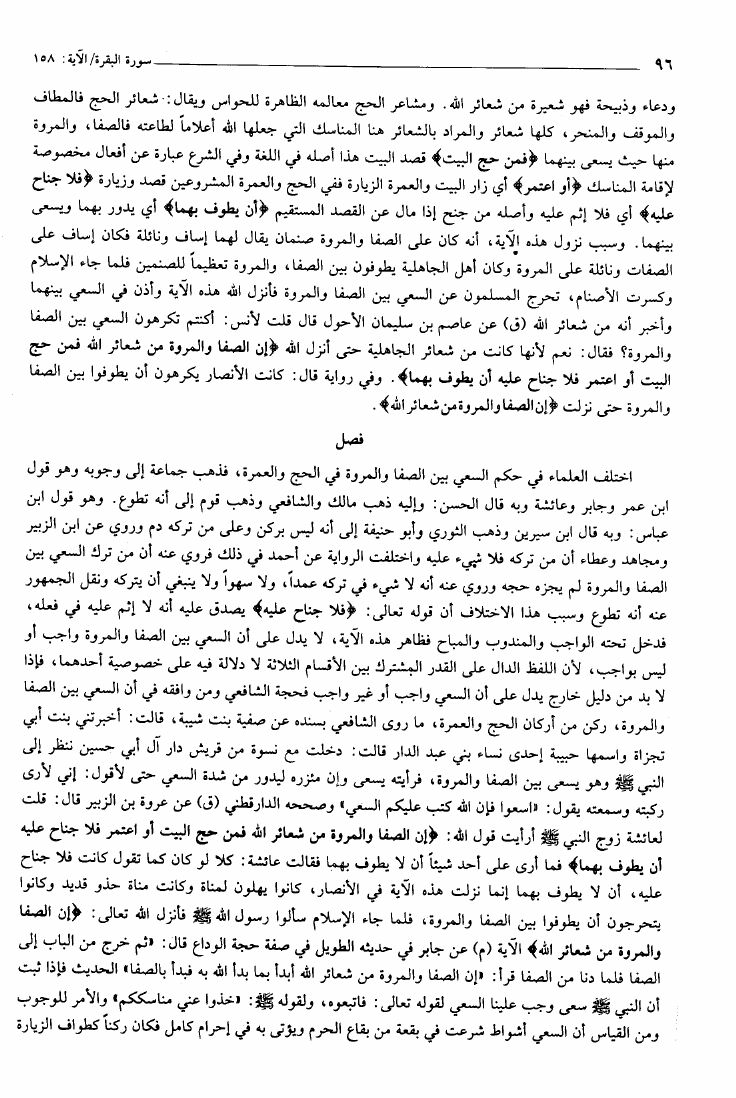 ٩٦ سورة البقرة/الآية: ١٥٨
ودعاء وذبيحة فهو شعيرة من شعائر الله. ومشاعر الحج معالمه الظاهرة للحواس ويقال: شعائر الحج فالمطاف
والموقف والمنحر، كلها شعائر والمراد بالشعائر هنا المناسك التي جعلها الله أعلاماً لطاعته فالصفا، والمروة
منها حيث يسعى بينهما ﴿فمن حج البيت﴾ قصد البيت هذا أصله في اللغة وفي الشرع عبارة عن أفعال مخصوصة
لإقامة المناسك ﴿أو اعتمر﴾ أي زار البيت والعمرة الزيارة ففي الحج والعمرة المشروعين قصد وزيارة ﴿فلا جناح
عليه﴾ أي فلا إثم عليه وأصله من جنح إذا مال عن القصد المستقيم ﴿أن يطوف بهما﴾ أي يدور بهما ويسعى
بينهما. وسبب نزول هذه الآية، أنه كان على الصفا والمروة صنمان يقال لهما إساف ونائلة فكان إساف على
الصفات ونائلة على المروة وكان أهل الجاهلية يطوفون بين الصفا، والمروة تعظيماً للصنمين فلما جاء الإسلام
وكسرت الأصنام، تحرج المسلمون عن السعي بين الصفا والمروة فأنزل الله هذه الآية وأذن في السعي بينهما
وأخبر أنه من شعائر الله (ق) عن عاصم بن سليمان الأحول قال قلت لأنس: أكنتم تكرهون السعي بين الصفا
والمروة؟ فقال: نعم لأنها كانت من شعائر الجاهلية حتى أنزل الله ﴿إن الصفا والمروة من شعائر الله فمن حج
البيت أو اعتمر فلا جناح عليه أن يطوف بهما﴾. وفي رواية قال: كانت الأنصار يكرهون أن يطوفوا بين الصفا
والمروة حتى نزلت ﴿إن الصفا والمروة من شعائر الله﴾.
فصل
اختلف العلماء في حكم السعي بين الصفا والمروة في الحج والعمرة، فذهب جماعة إلى وجوبه وهو قول
ابن عمر وجابر وعائشة وبه قال الحسن: وإليه ذهب مالك والشافعي وذهب قوم إلى أنه تطوع. وهو قول ابن
عباس: وبه قال ابن سيرين وذهب الثوري وأبو حنيفة إلى أنه ليس بركن وعلى من تركه دم وروي عن ابن الزبير
ومجاهد وعطاء أن من تركه فلا شيء عليه واختلفت الرواية عن أحمد في ذلك فروي عنه أن من ترك السعي بين
الصفا والمروة لم يجزه حجه وروي عنه أنه لا شيء في تركه عمداً، ولا سهواً ولا ينبغي أن يتركه ونقل الجمهور
عنه أنه تطوع وسبب هذا الاختلاف أن قوله تعالى: ﴿فلا جناح عليه﴾ يصدق عليه أنه لا إثم عليه في فعله،
فدخل تحته الواجب والمندوب والمباح فظاهر هذه الآية، لا يدل على أن السعي بين الصفا والمروة واجب أو
ليس بواجب، لأن اللفظ الدال على القدر المشترك بين الأقسام الثلاثة لا دلالة فيه على خصوصية أحدهما، فإذا
لا بد من دليل خارج يدل على أن السعي واجب أو غير واجب فحجة الشافعي ومن وافقه في أن السعي بين الصفا
والمروة، ركن من أركان الحج والعمرة، ما روى الشافعي بسنده عن صفية بنت شيبة، قالت: أخبرتني بنت أبي
تجزاة واسمها حبيبة إحدى نساء بني عبد الدار قالت: دخلت مع نسوة من قريش دار آل أبي حسين ننظر إلى
النبي ﷺ وهو يسعى بين الصفا والمروة، فرأيته يسعى وإن مئزره ليدور من شدة السعي حتى لأقول: إني لأرى
ركبته وسمعته يقول: «اسعوا فإن الله كتب عليكم السعي» وصححه الدارقطني (ق) عن عروة بن الزبير قال: قلت
لعائشة زوج النبي ﷺ أرأيت قول الله: ﴿إن الصفا والمروة من شعائر الله فمن حج البيت أو اعتمر فلا جناح عليه
أن يطوف بهما﴾ فما أرى على أحد شيئاً أن لا يطوف بهما فقالت عائشة: كلا لو كان كما تقول كانت فلا جناح
عليه، أن لا يطوف بهما إنما نزلت هذه الآية في الأنصار، كانوا يهلون لمناة وكانت مناة حذو قديد وكانوا
يتحرجون أن يطوفوا بين الصفا والمروة، فلما جاء الإسلام سألوا رسول الله ﷺ فأنزل الله تعالى: ﴿إن الصفا
والمروة من شعائر الله﴾ الآية (م) عن جابر في حديثه الطويل في صفة حجة الوداع قال: «ثم خرج من الباب إلى
الصفا فلما دنا من الصفا قرأ: «إن الصفا والمروة من شعائر الله أبدأ بما بدأ الله به فبدأ بالصفا» الحديث فإذا ثبت
أن النبي ﷺ سعى وجب علينا السعي لقوله تعالى: فاتبعوه، ولقوله ﷺ: «خذوا عني مناسككم» والأمر للوجوب
ومن القياس أن السعي أشواط شرعت في بقعة من بقاع الحرم ويؤتى به في إحرام كامل فكان ركناً كطواف الزيارة